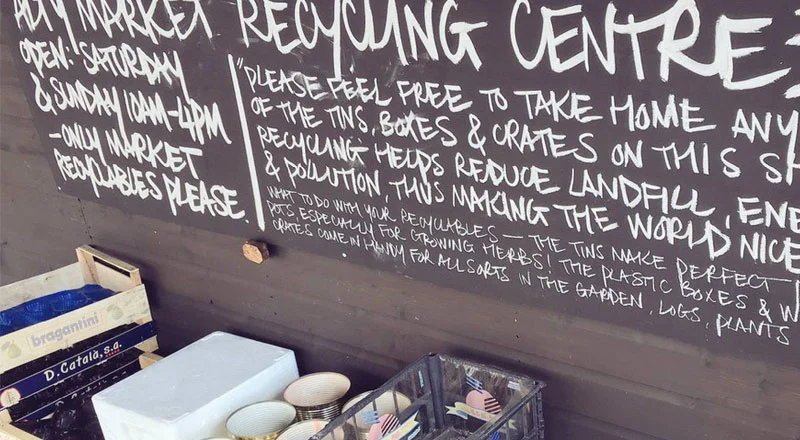 MARKET RECYCLING CENTRE
OPEN: SATURDAY
& SUNDAY 10AM-4PM
-ONLY MARKET
RECYCLABLES PLEASE.
"PLEASE FEEL FREE TO TAKE HOME ANY
OF THE TINS, BOXES & CRATES ON THIS
RECYCLING HELPS REDUCE LANDFILL,
& POLLUTION, THUS MAKING THE WORLD NICE
WHAT TO DO WITH YOUR RECYCLABLES — THE TINS MAKE PERFECT
POTS, ESPECIALLY FOR GROWING HERBS! THE PLASTIC BOXES &
CRATES COME IN HANDY FOR ALL SORTS IN THE GARDEN, LOGS, PLANTS
bragantini
D. Català, s.a.